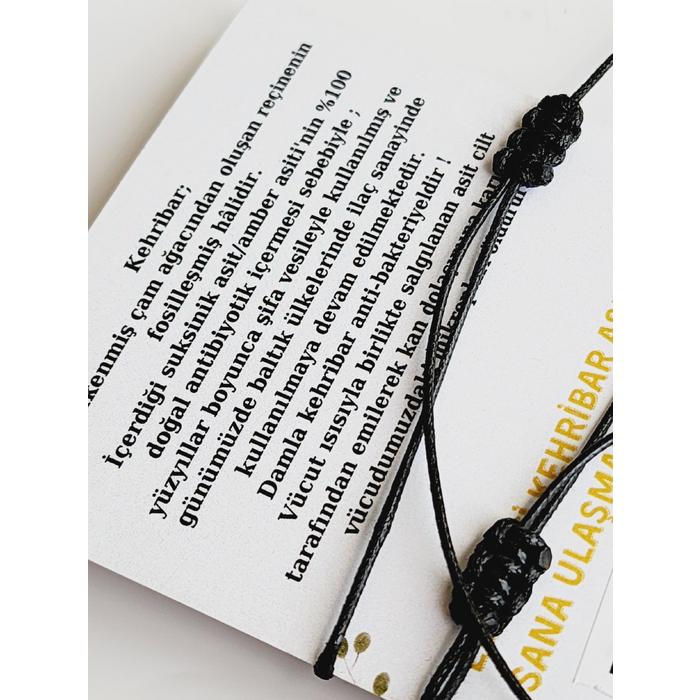 Kehribar;
çam ağacından oluşan reçinenin
fosilleşmiş hâlidir.
İçerdiği suksinik asit/amber asiti'nin %100
doğal antibiyotik içermesi sebebiyle ;
yüzyıllar boyunca şifa vesileyle kullanılmış ve
günümüzde baltık ülkelerinde ilaç sanayinde
kullanılmaya devam edilmektedir.
Damla kehribar anti-bakteriyeldir !
Vücut ısısıyla birlikte salgılanan asit cilt
tarafından emilerek kan
vücudumuzdaki
KEHRİBAR
SANA ULAŞMA